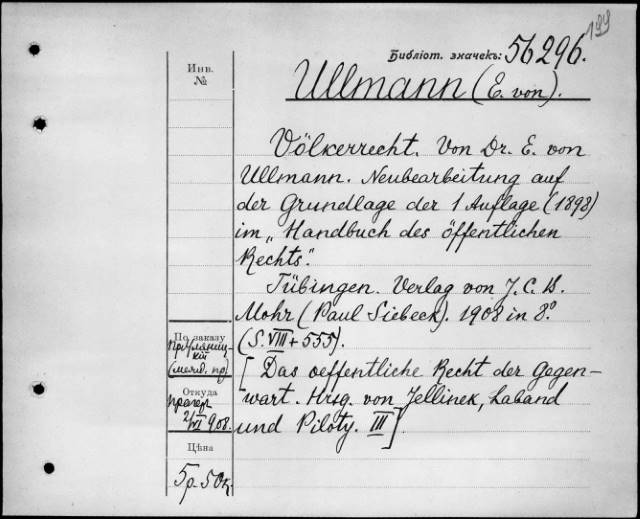 199
Библіот. значекъ: 56296.
Инв.
№
Ullmann (E. von).
Völkerrecht. Von Dr. E. von
Ullmann. Neubearbeitung auf
der Grundlage der 1 Auflage (1898)
im „Handbuch des öffentlichen
Rechts".
Tübingen. Verlag von J. C. B.
Mohr (Paul Siebeck). 1908 in 8º
(S. VIII + 555).
[Das oeffentliche Recht der Gegen-
wart. Hrsg. von Jellinek, Laband
und Piloty. III]
По заказу
Откуда
908.
Цѣна
5р. 50к